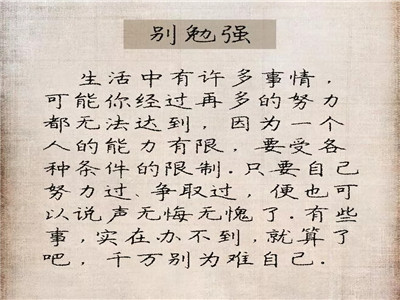 别勉强
生活中有许多事情，
可能你经过再多的努力
都无法达到，因为一个
人的能力有限，要受各
种条件的限制.只要自己
努力过、争取过，便也可
以说声无悔无愧了.有些
事，实在办不到，就算了
吧，千万别为难自己.